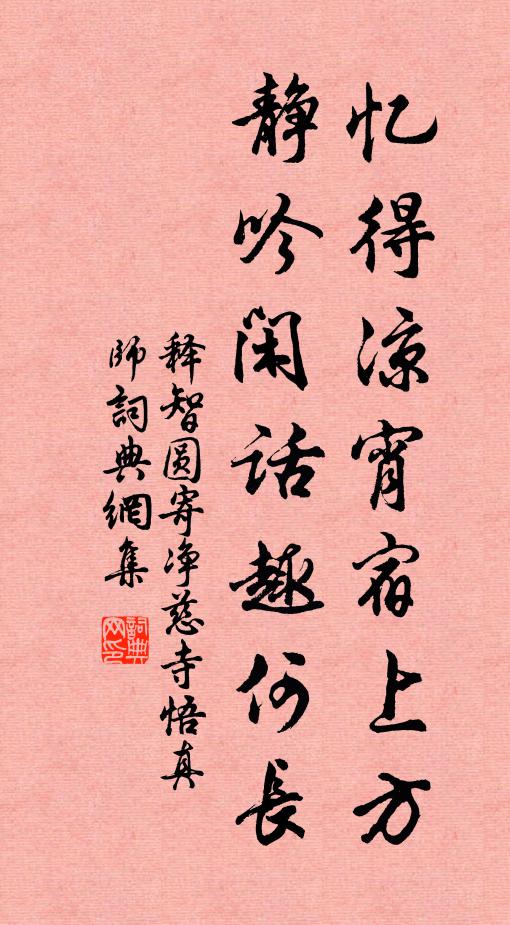 忆得凉宵宿上方
静吟闲话趣何長
释智圆寄净慈寺悟真
师詞典網集
詞典网印